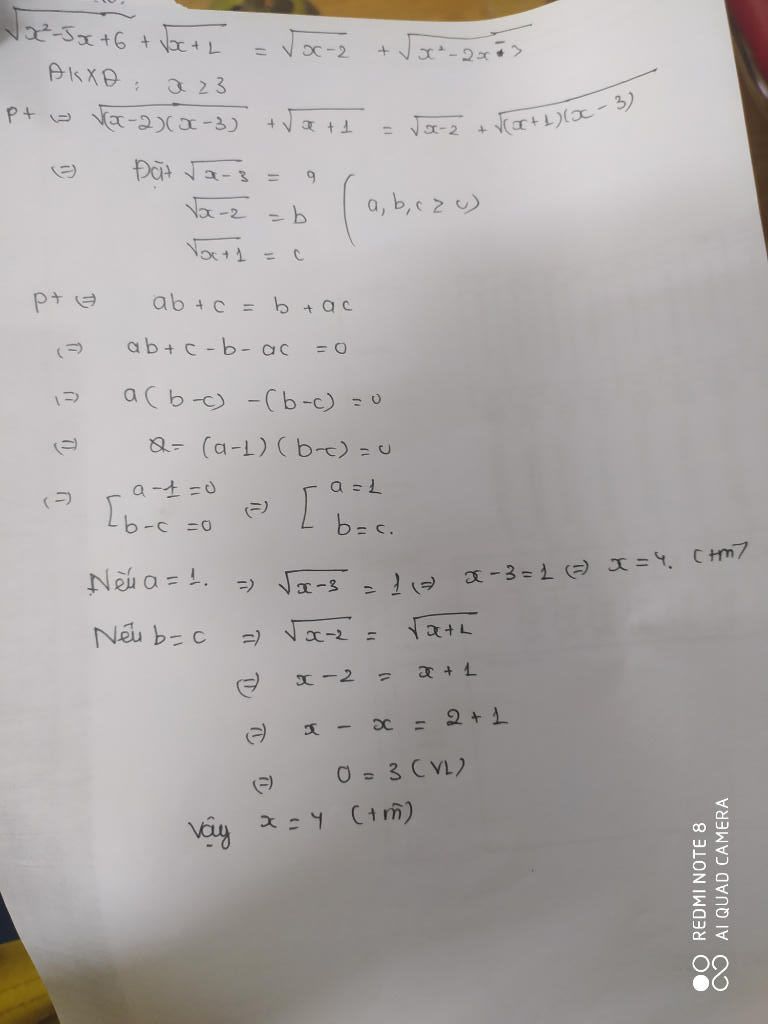 √(x²-5x+6) + √(x+1) = √(x-2) + √(x²-2x-3)
ĐKXĐ : x ≥ 3
pt ⇔ √((x-2)(x-3)) + √(x+1) = √(x-2) + √((x+1)(x-3))
⇔ Đặt √(x-3) = a
√(x-2) = b ( a, b, c ≥ 0)
√(x+1) = c
pt ⇔ ab + c = b + ac
⇔ ab + c - b - ac = 0
⇔ a( b-c) -(b-c) = 0
⇔ (a-1)( b-c) = 0
⇔ [ a-1 = 0 ⇔ [ a = 1
b-c = 0 b = c.
Nếu a = 1. ⇒ √(x-3) = 1 ⇔ x-3 = 1 ⇔ x = 4. (tm)
Nếu b = c ⇒ √(x-2) = √(x+1)
⇔ x - 2 = x + 1
⇔ x - x = 2 + 1
⇔ 0 = 3 (VL)
Vậy x = 4 (tm)
REDMI NOTE 8
AI QUAD CAMERA